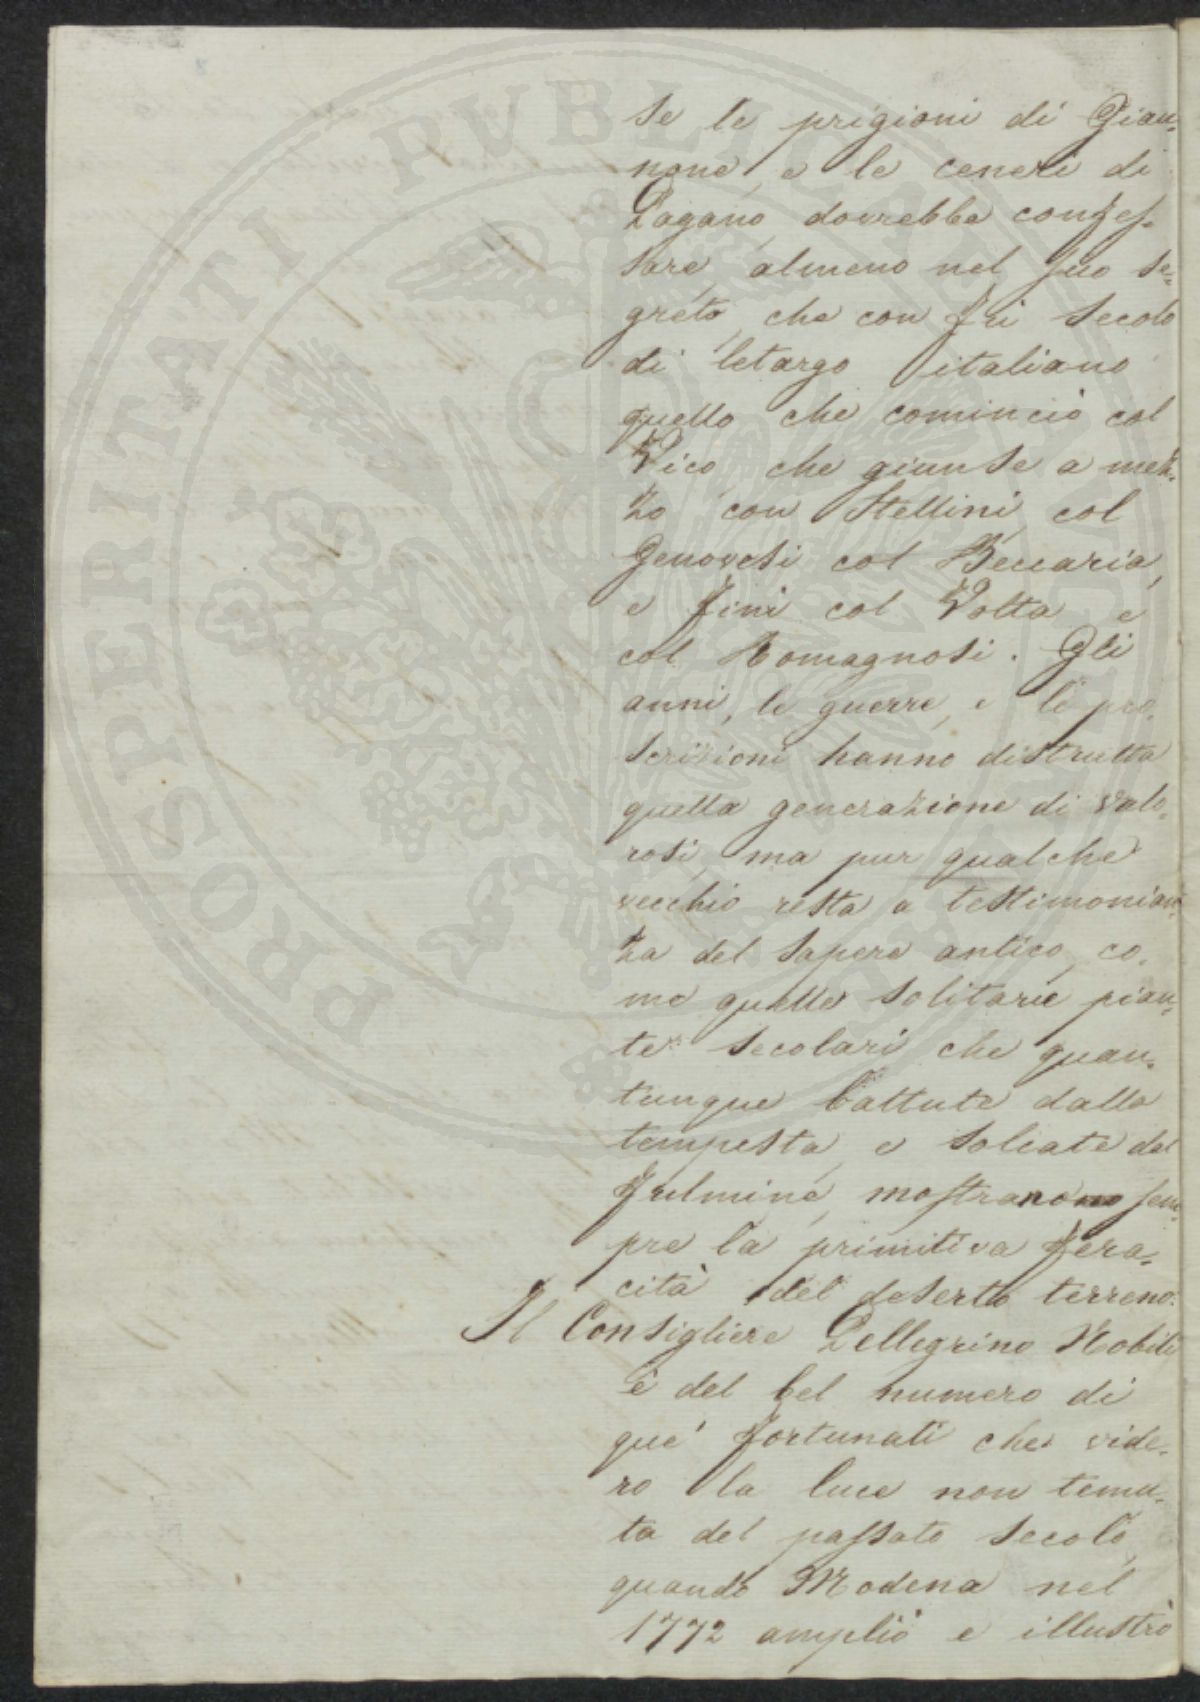 se le prigioni di Gian-
none, e le ceneri di
Pagano, dovrebbe confes-
sare, almeno nel suo se-
greto, che con fu secolo
di letargo italiano
quello che cominciò col
Vico, che giunse a mez-
zo con Stellini col
Genovesi col Beccaria,
e finì col Volta e
col Romagnosi. Gli
anni, le guerre, e le pro-
scrizioni hanno distrutta
quella generazione di valo-
rosi, ma pur qualche
vecchio resta a testimonian-
za del sapere antico, co-
me quelle solitarie pian-
te secolari che quan-
tunque battute dalla
tempesta, e solcate dal
fulmine, mostrano sem-
pre la primitiva fera-
cità del deserto terreno.
Il Consigliere Pellegrino Nobili
è del bel numero di
que' fortunati che vide-
ro la luce non temu-
ta del passato secolo,
quando Modena nel
1772 ampliò e illustrò
PROSPERITATI PUBLICAE